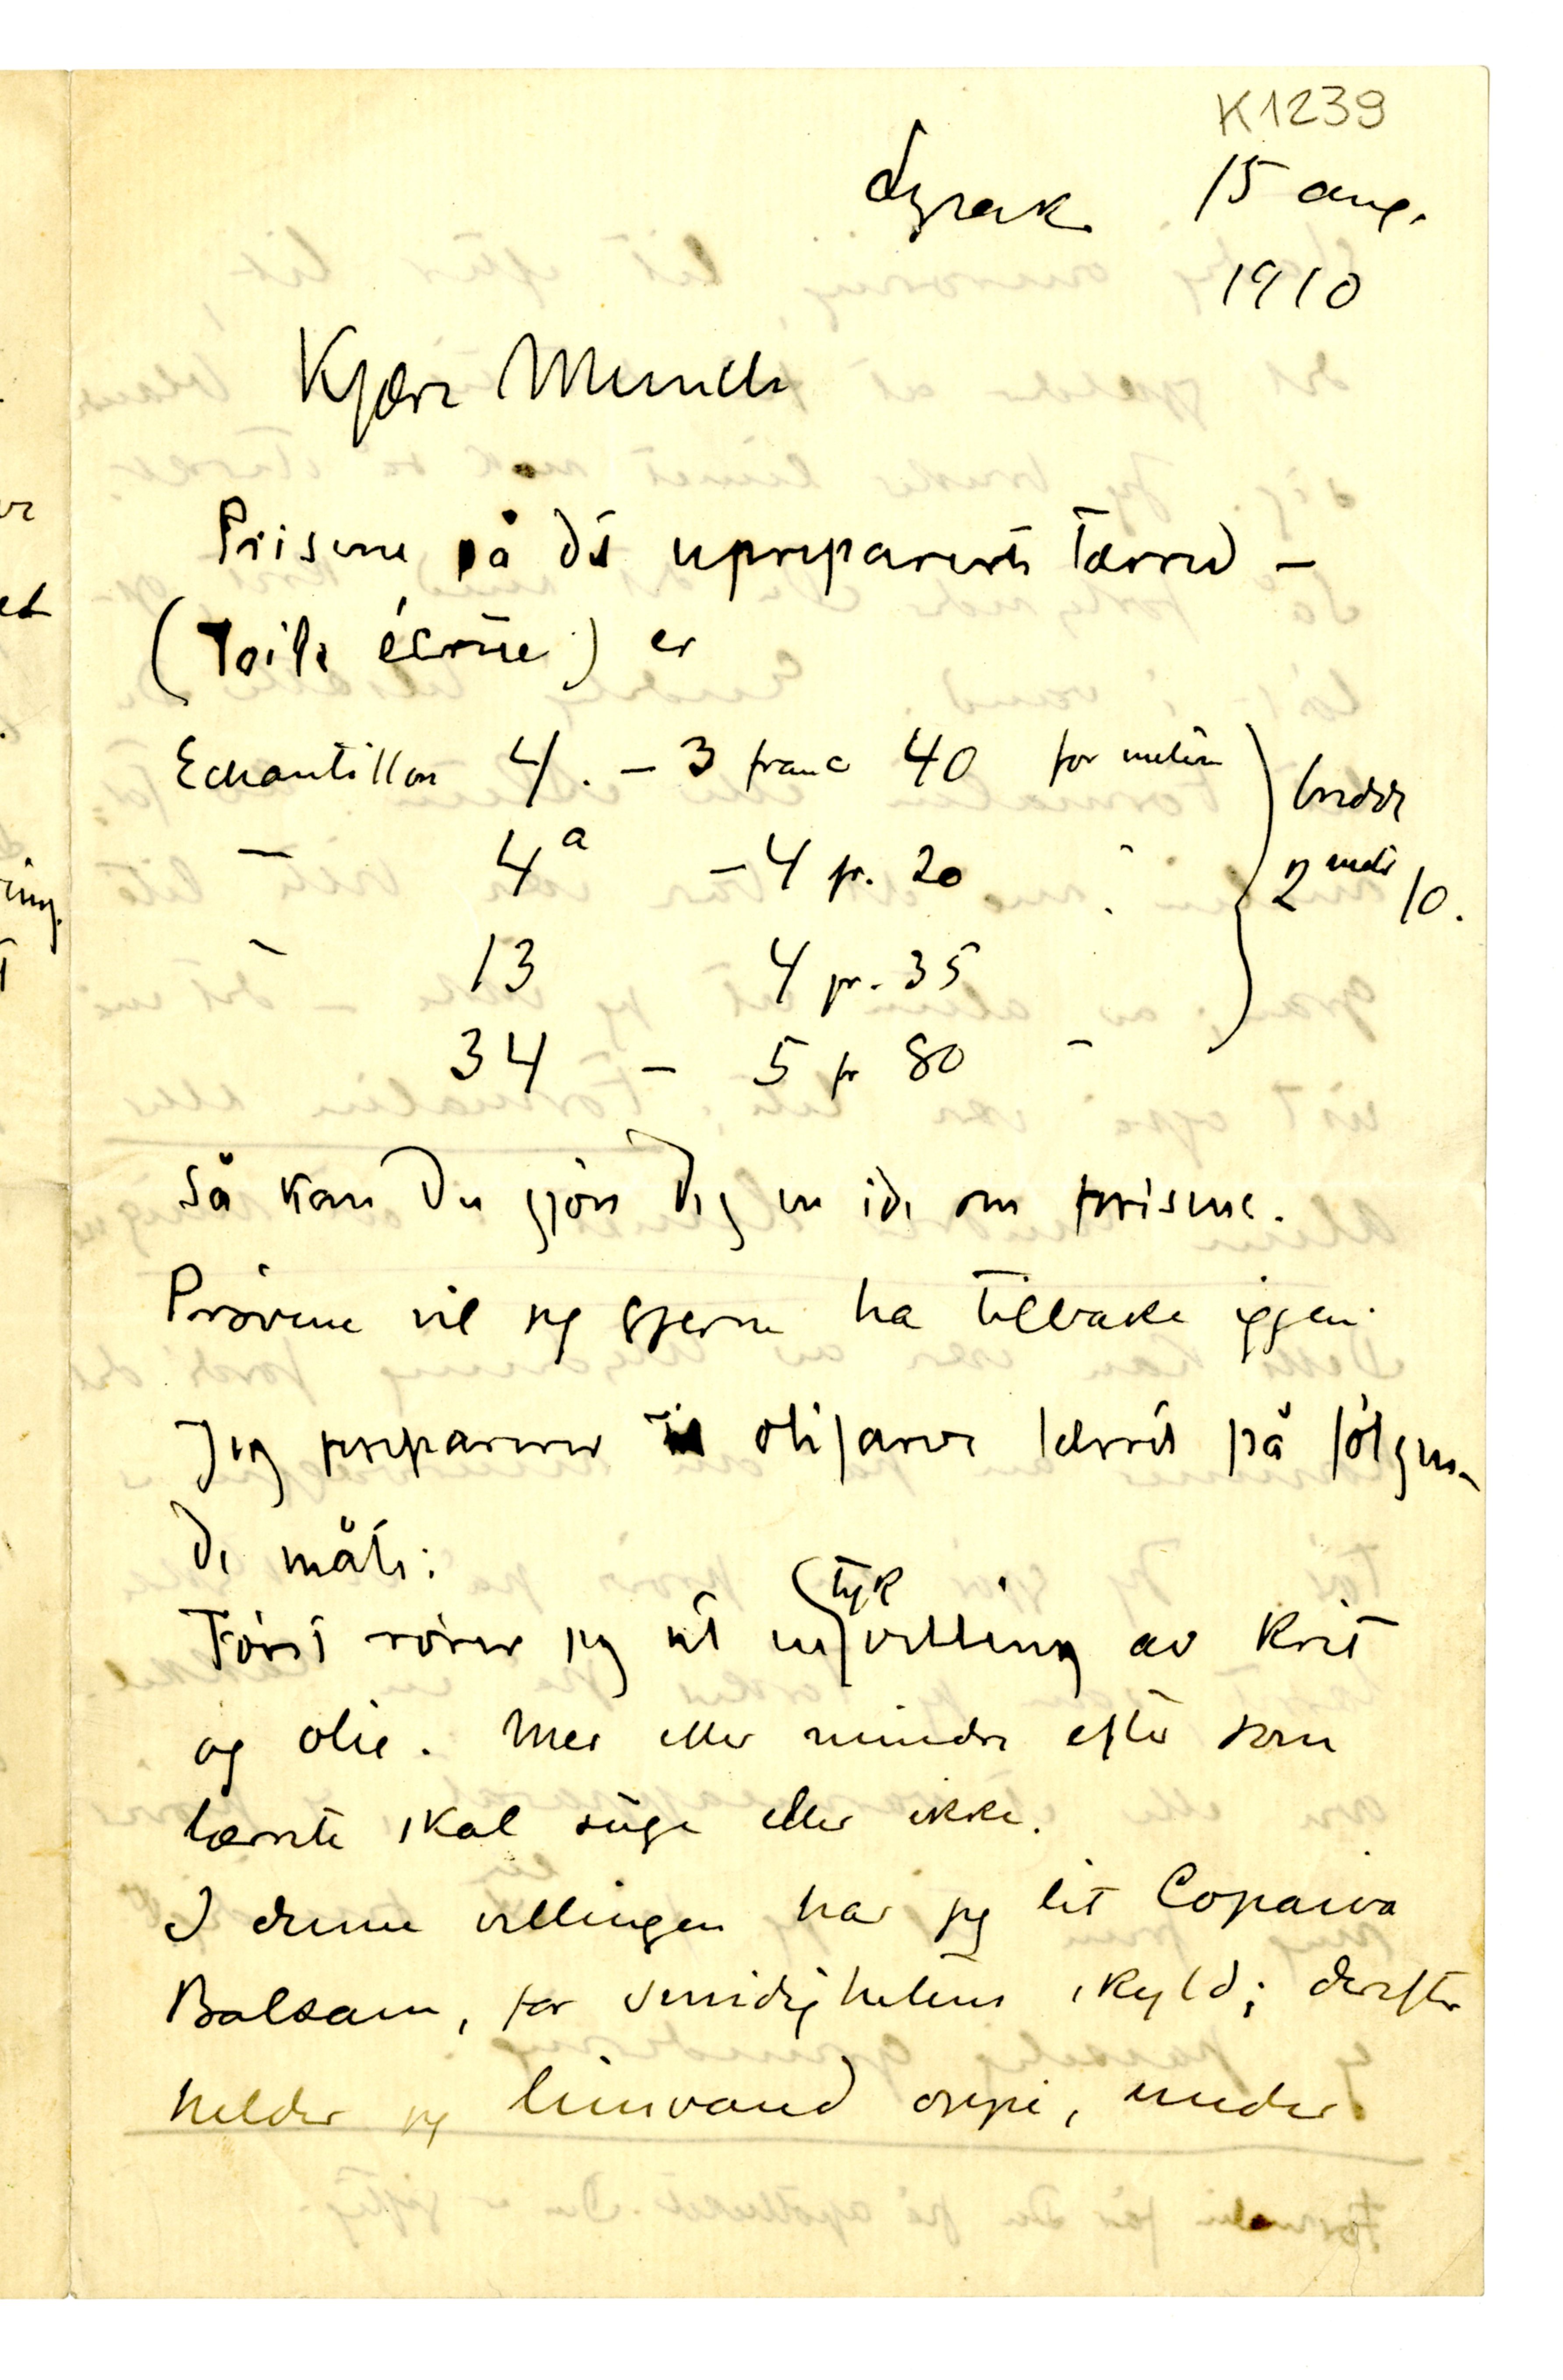 K1239
Lysaker 15 aug.
1910
Kjære Munch
Prisene på det upreparerte lærred –
(Toile écrue) er
Echantillon 4. – 3 franc 40 for metern
— 4a – 4 fr. 20 "
— 13 4 fr. 35
34 – 5 fr 80 –
bredde
2 meter 10.
Så kan Du gjøre Dig en ide om prisene.
Prøvene vil jeg gjerne ha tilbake igjen.
Jeg preparerer oljefarve lærret på følgen-
de måte:
Først rører jeg ut en tyk velling av krit
og olie. Mer eller mindre efter som
lærretet skal suge eller ikke.
I denne vellingen har jeg lit Copaiva
Balsam, for smidighetens skyld; derefter
helder jeg limvand oppi, under